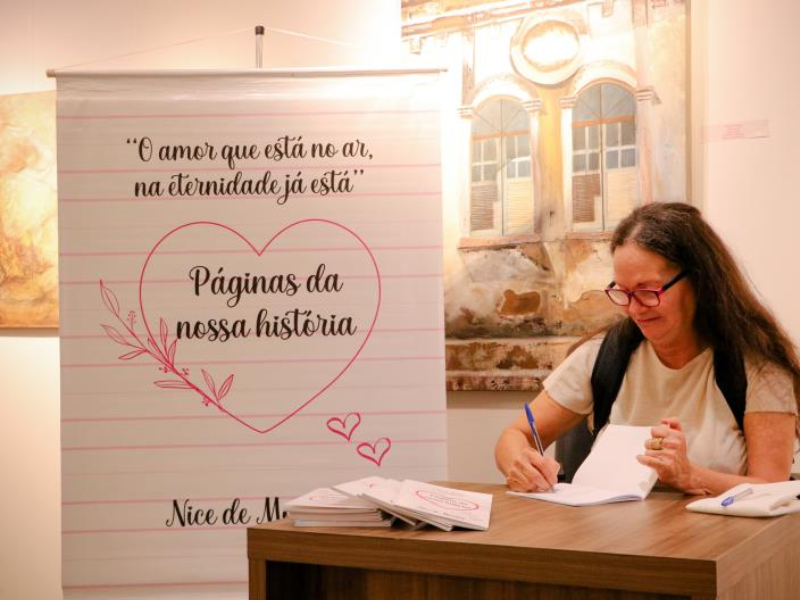 “O amor que está no ar,
na eternidade já está”
Páginas da
nossa história
Nice de